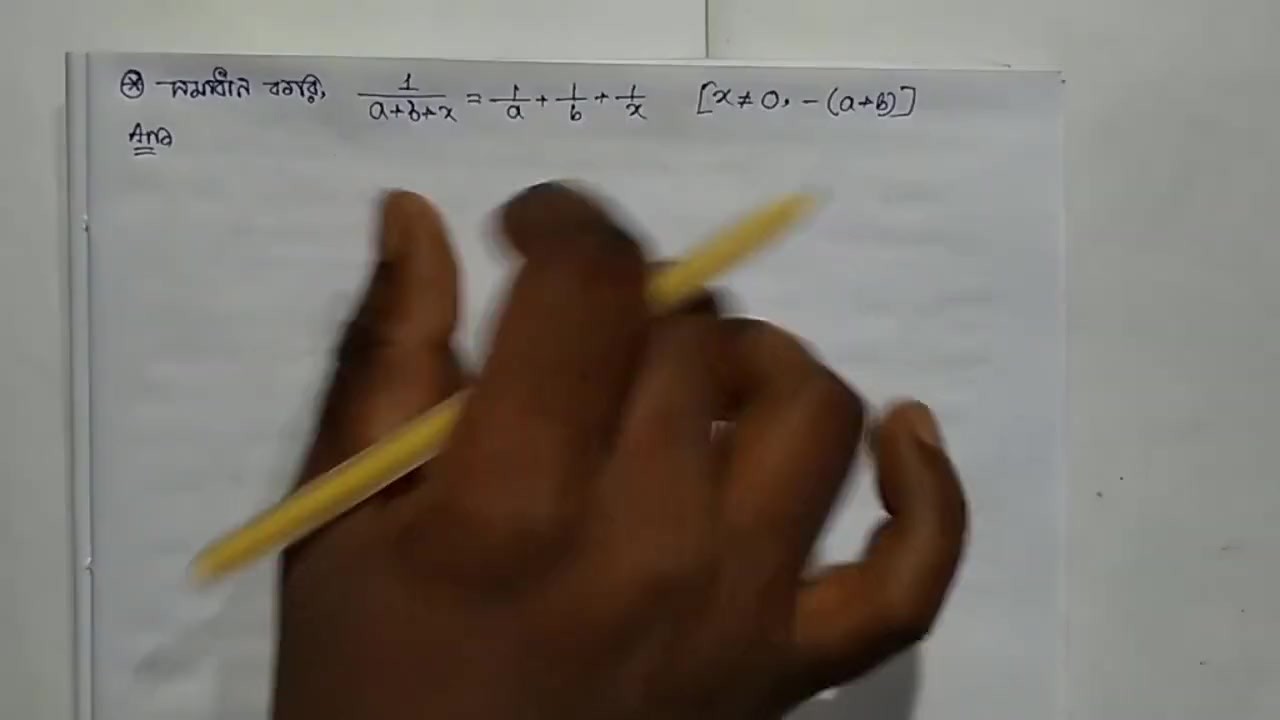 ⊛ সমাধান করি, 1/(a+b+x) = 1/a + 1/b + 1/x [x ≠ 0, -(a+b)]
Ans